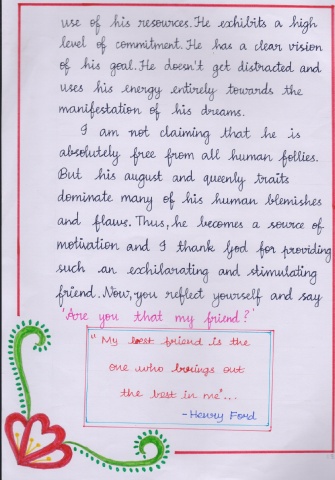 use of his resources. He exhibits a high
level of commitment. He has a clear vision
of his goal. He doesn't get distracted and
uses his energy entirely towards the
manifestation of his dreams.
I am not claiming that he is
absolutely free from all human follies.
But his august and queenly traits
dominate many of his human blemishes
and flaws. Thus, he becomes a source of
motivation and I thank God for providing
such an exhilarating and stimulating
friend. Now, you reflect yourself and say
'Are you that my friend?'
"My best friend is the
one who brings out
the best in me"...
- Henry Ford